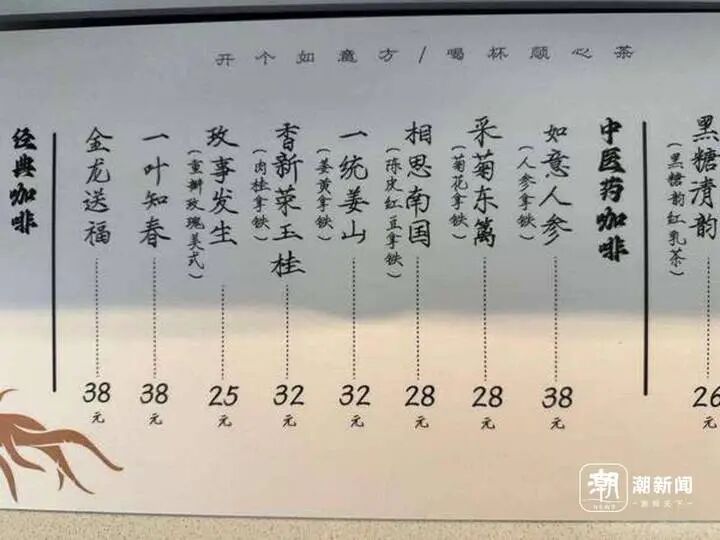 开个如意方/喝杯顺心茶
黑糖清韵
(黑糖韵红乳茶)
26元
中医药咖啡
如意人参
(人参拿铁)
38元
采菊东篱
(菊花拿铁)
28元
相思南国
(陈皮红豆拿铁)
28元
一统姜山
(姜黄拿铁)
32元
香新荣玉桂
(肉桂拿铁)
32元
玫事发生
(重瓣玫瑰美式)
25元
一叶知春
38元
金龙送福
38元
经典咖啡
潮 潮新闻
NEWS